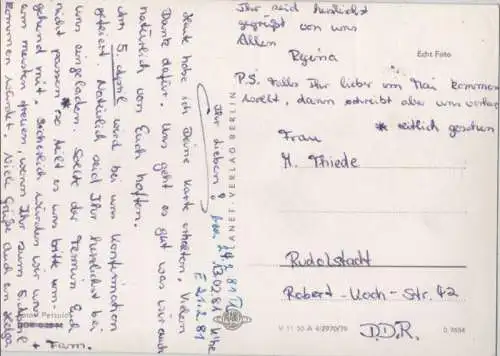 Ihr lieben!
heute habe ich Deine Karte erhalten. Vielen
Dank dafür. Uns geht es gut was wir auch
natürlich von Euch hoffen.
Am 5. April wird bei uns Konfirmation
gefeiert. Natürlich seid Ihr herzlichst bei
uns eingeladen. Sollte der Termin Euch
nicht passen * so teilt es uns bitte um-
gehend mit. Sicherlich würden wir uns
am meisten freuen wenn Ihr zum 5. April
kommen würdet. Viele Grüße auch an Helga
+ Fam.
Ihr seid herzlichst
gegrüßt von uns
Allen
Regina
Echt Foto
P.S. Falls Ihr lieber im Mai kommen
wollt, dann schreibt aber uns vorher
* zeitlich gesehen
Frau
M. Thiede
Rudolstadt
Robert-Koch-Str. 42
D.D.R.
13.02.81
E 21.2.81
PLANET-VERLAG BERLIN
V 11 50 A 4/2970/79